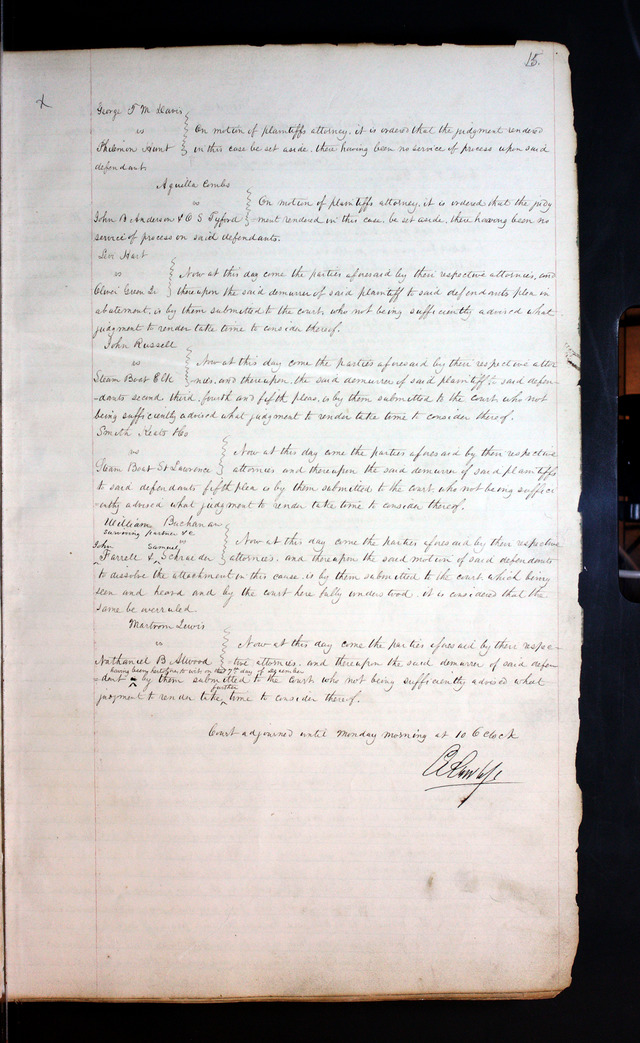 15.
x
George T M Davis
vs
Philemon Hunt
On motion of plaintiffs attorney, it is ordered that the judgment rendered
in this case be set aside, there having been no service of process upon said
defendant.
Aquilla Combs
vs
John B Anderson & O S Tyford
On motion of plaintiffs attorney, it is ordered that the judg
-ment rendered in this case, be set aside, there having been no
service of process on said defendants.
Levi Hart
vs
Oliver Green Sr
Now at this day come the parties aforesaid by their respective attornies, and
thereupon the said demurrer of said plaintiff to said defendants plea in
abatement, is by them submitted to the court, who not being sufficiently advised what
judgment to render take time to consider thereof.
John Russell
vs
Steam Boat Elk
Now at this day come the parties aforesaid by their respective attor
-nies, and thereupon, the said demurrer of said plaintiff to said defen-
-dants second, third, fourth and fifth pleas, is by them submitted to the court, who not
being sufficiently advised what judgment to render take time to consider thereof.
Smith Keats & Co
vs
Steam Boat St Lawrence
Now at this day came the parties aforesaid by their respective
attornies and thereupon the said demurrer of said plaintiffs
to said defendants fifth plea is by them submitted to the court, who not being suffici
-ently advised what judgment to render take time to consider thereof.
William Buchanan
surviving partner &c
vs
John Samuel
Farrell & Schraeder
Now at this day come the parties aforesaid by their respective
attornies, and thereupon the said motion of said defendants
to dissolve the attachment in this cause, is by them submitted to the court, which being
seen and heard and by the court here fully understood, it is considered that the
same be overruled.
Martrom Lewis
vs
Nathaniel B Atwood
Now at this day come the parties aforesaid by their respec-
-tive attornies, and thereupon the said demurrer of said defen-
having being heretofore to wit on the 7th day of September
-dant by them submitted to the court, who not being sufficiently advised what
further
judgment to render take time to consider thereof.
Court adjourned until Monday morning at 10 O clock